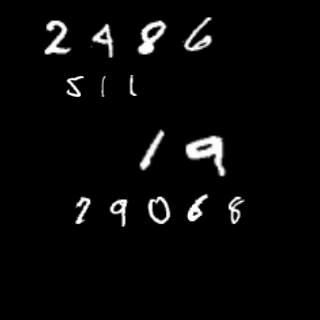 2486
511
19
79068